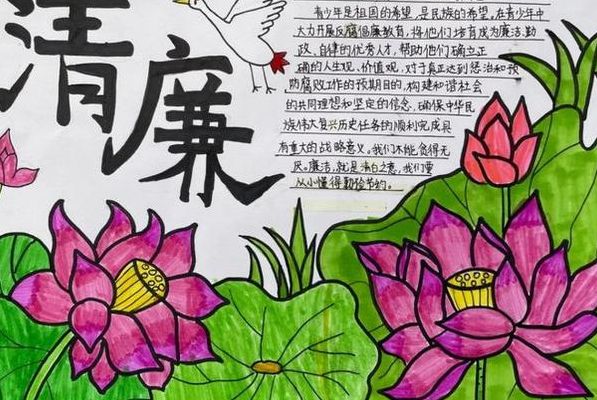 清廉
青少年是祖国的希望,是民族的希望。在青少年中
大力开展反腐倡廉教育,将他们培育成为廉洁、勤
政、自律的优秀人才,帮助他们确立正
确的人生观、价值观,对于真正达到惩治和预
防腐败工作的预期目的,构建和谐社会
的共同理想和坚定的信念,确保中华民
族伟大复兴历史任务的顺利完成具
有重大的战略意义。我们不能贪得无
厌。廉洁,就是清白之意,我们要
从小懂得勤俭节约。